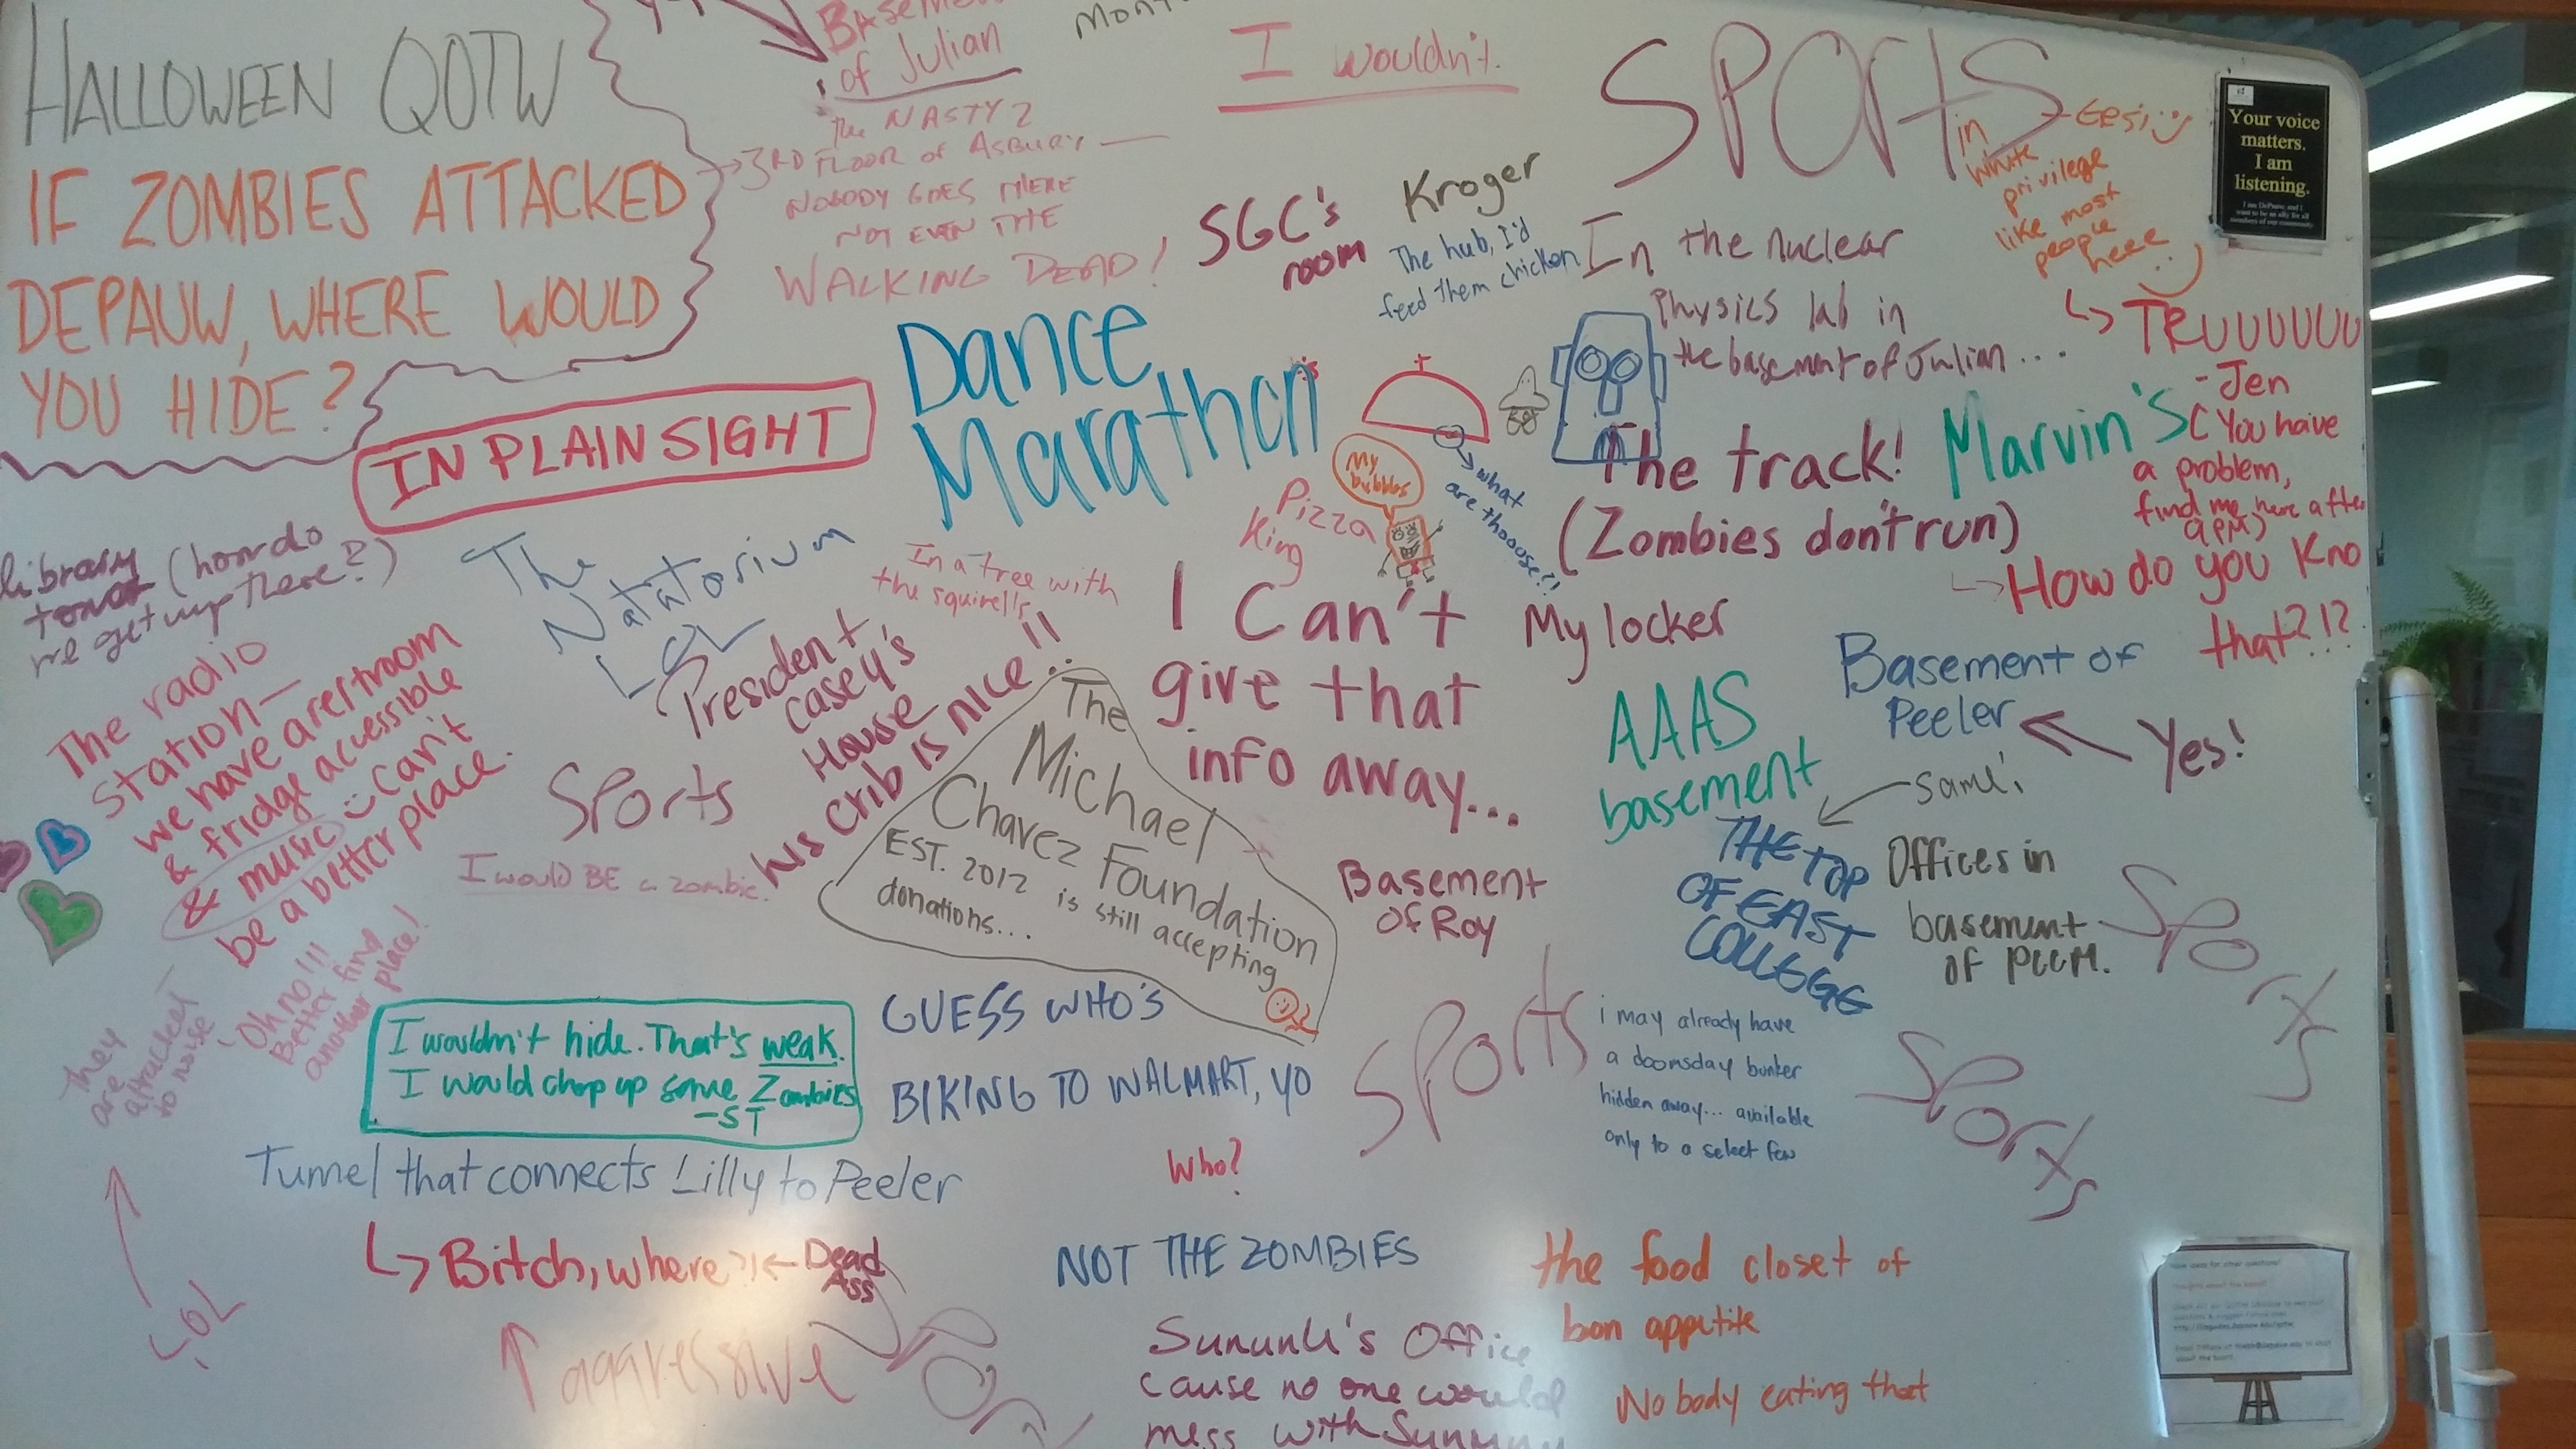 HALLOWEEN QOTW
IF ZOMBIES ATTACKED
DEPAUW, WHERE WOULD
YOU HIDE?
of Julian
The NASTY 2
3RD FLOOR of ASBURY
NOBODY GOES THERE
NOT EVEN THE
WALKING DEAD!
I wouldn't.
SPORTS
in
white
privilege
like most
people
here
TRUUUUUU
-Jen
(You have
a problem,
find me here after
9PM)
How do you Kno
that?!?
Your voice
matters.
I am
listening.
SGC's
room
Kroger
The hub, I'd
feed them chicken
In the nuclear
Physics lab in
the basement of Julian....
IN PLAIN SIGHT
Dance
Marathon
My
bubbles
what
are thooose?!
Pizza
King
The track!
(Zombies don't run)
Marvin's
library
tower (how do
we get up there?)
The
Natatorium
LOL
In a tree with
the squirells
President
Casey's
House
his crib is nice!!
The radio
station—
we have a restroom
& fridge accessible
& music can't
be a better place.
Sports
I would BE a zombie.
The
Michael
Chavez Foundation
EST. 2012 is still accepting
donations...
I Can't
give that
info away...
My locker
AAAS
basement
Basement of
Peeler
Yes!
same!
THE TOP
OF EAST
COLLEGE
Offices in
basement
of PCCM.
Basement
of Roy
Sports
Sports
Sports
They
are
attracted
to noise
Oh no!!!
Better find
another place!
LOL
I wouldn't hide. That's weak.
I would chop up some Zombies
-ST
GUESS WHO'S
BIKING TO WALMART, YO
Who?
NOT THE ZOMBIES
i may already have
a doomsday bunker
hidden away... available
only to a select few
Tunnel that connects Lilly to Peeler
Bitch, where?!
Dead
Ass
aggressive
the food closet of
bon appetite
Nobody eating that
Sununu's Office
cause no one would
mess with Sununu